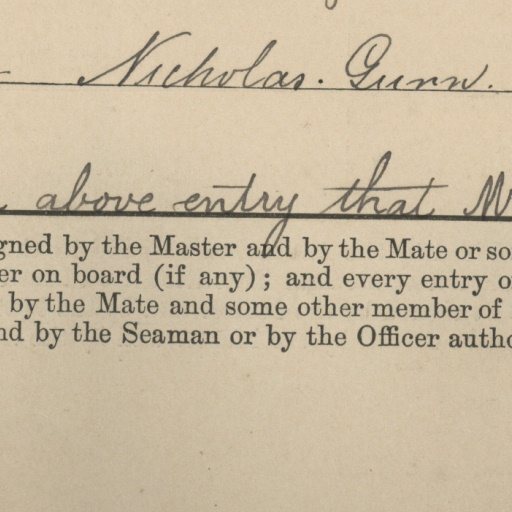 Nicholas. Gunn.
above entry that M
gned by the Master and by the Mate or so
er on board (if any); and every entry o
by the Mate and some other member of
nd by the Seaman or by the Officer autho